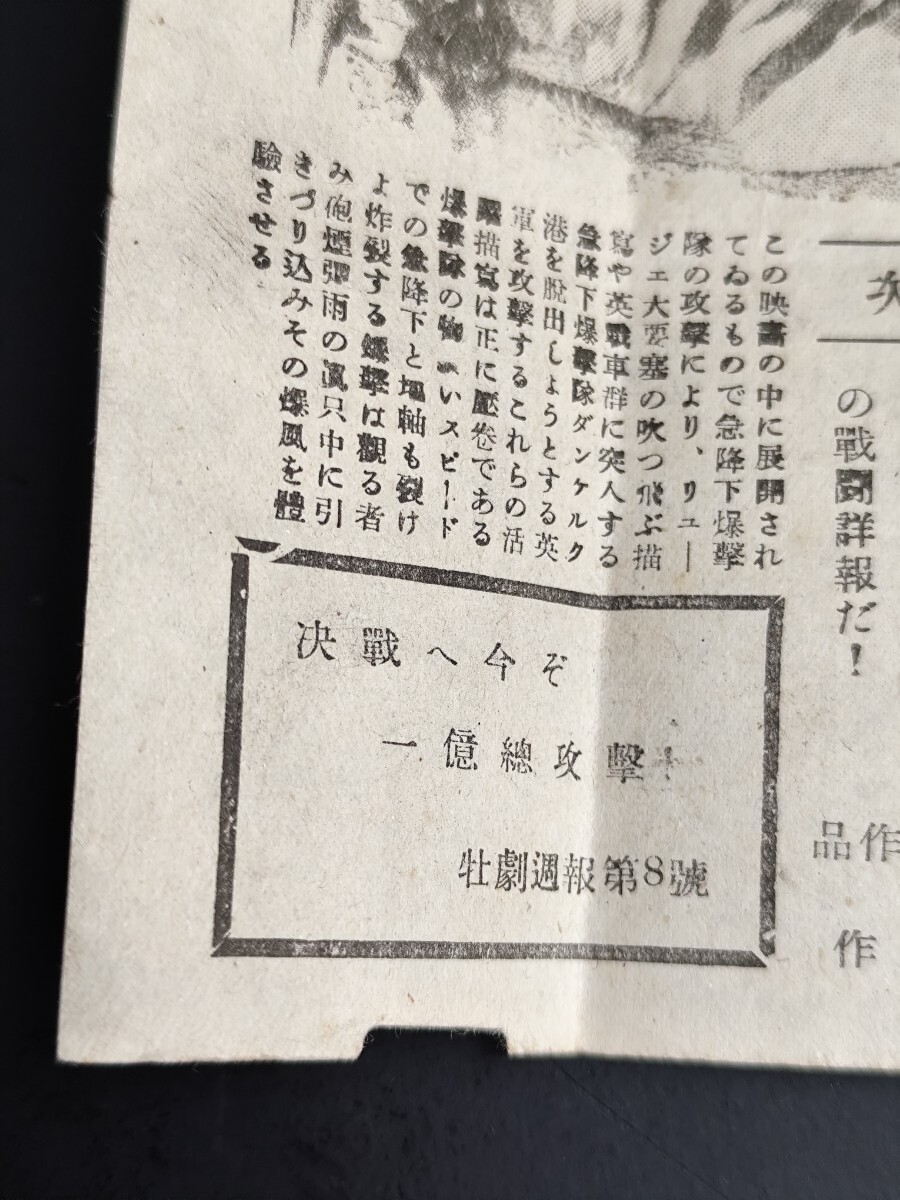 次
の戰鬪詳報だ!
品作
作
この映畫の中に展開され
てゐるもので急降下爆擊
隊の攻擊により、リユー
ジエ大要塞の吹つ飛ぶ描
寫や英戰車群に突入する
急降下爆擊隊ダンケルク
港を脫出しようとする英
軍を攻擊するこれらの活
描寫は正に壓卷である
爆擊隊の物いスピード
での急降下と地軸も裂け
よ炸裂する爆擊は觀る者
み砲煙彈雨の眞只中に引
きづり込みその爆風を體
驗させる
決戰へ今ぞ
一億總攻擊
牡劇週報第8號